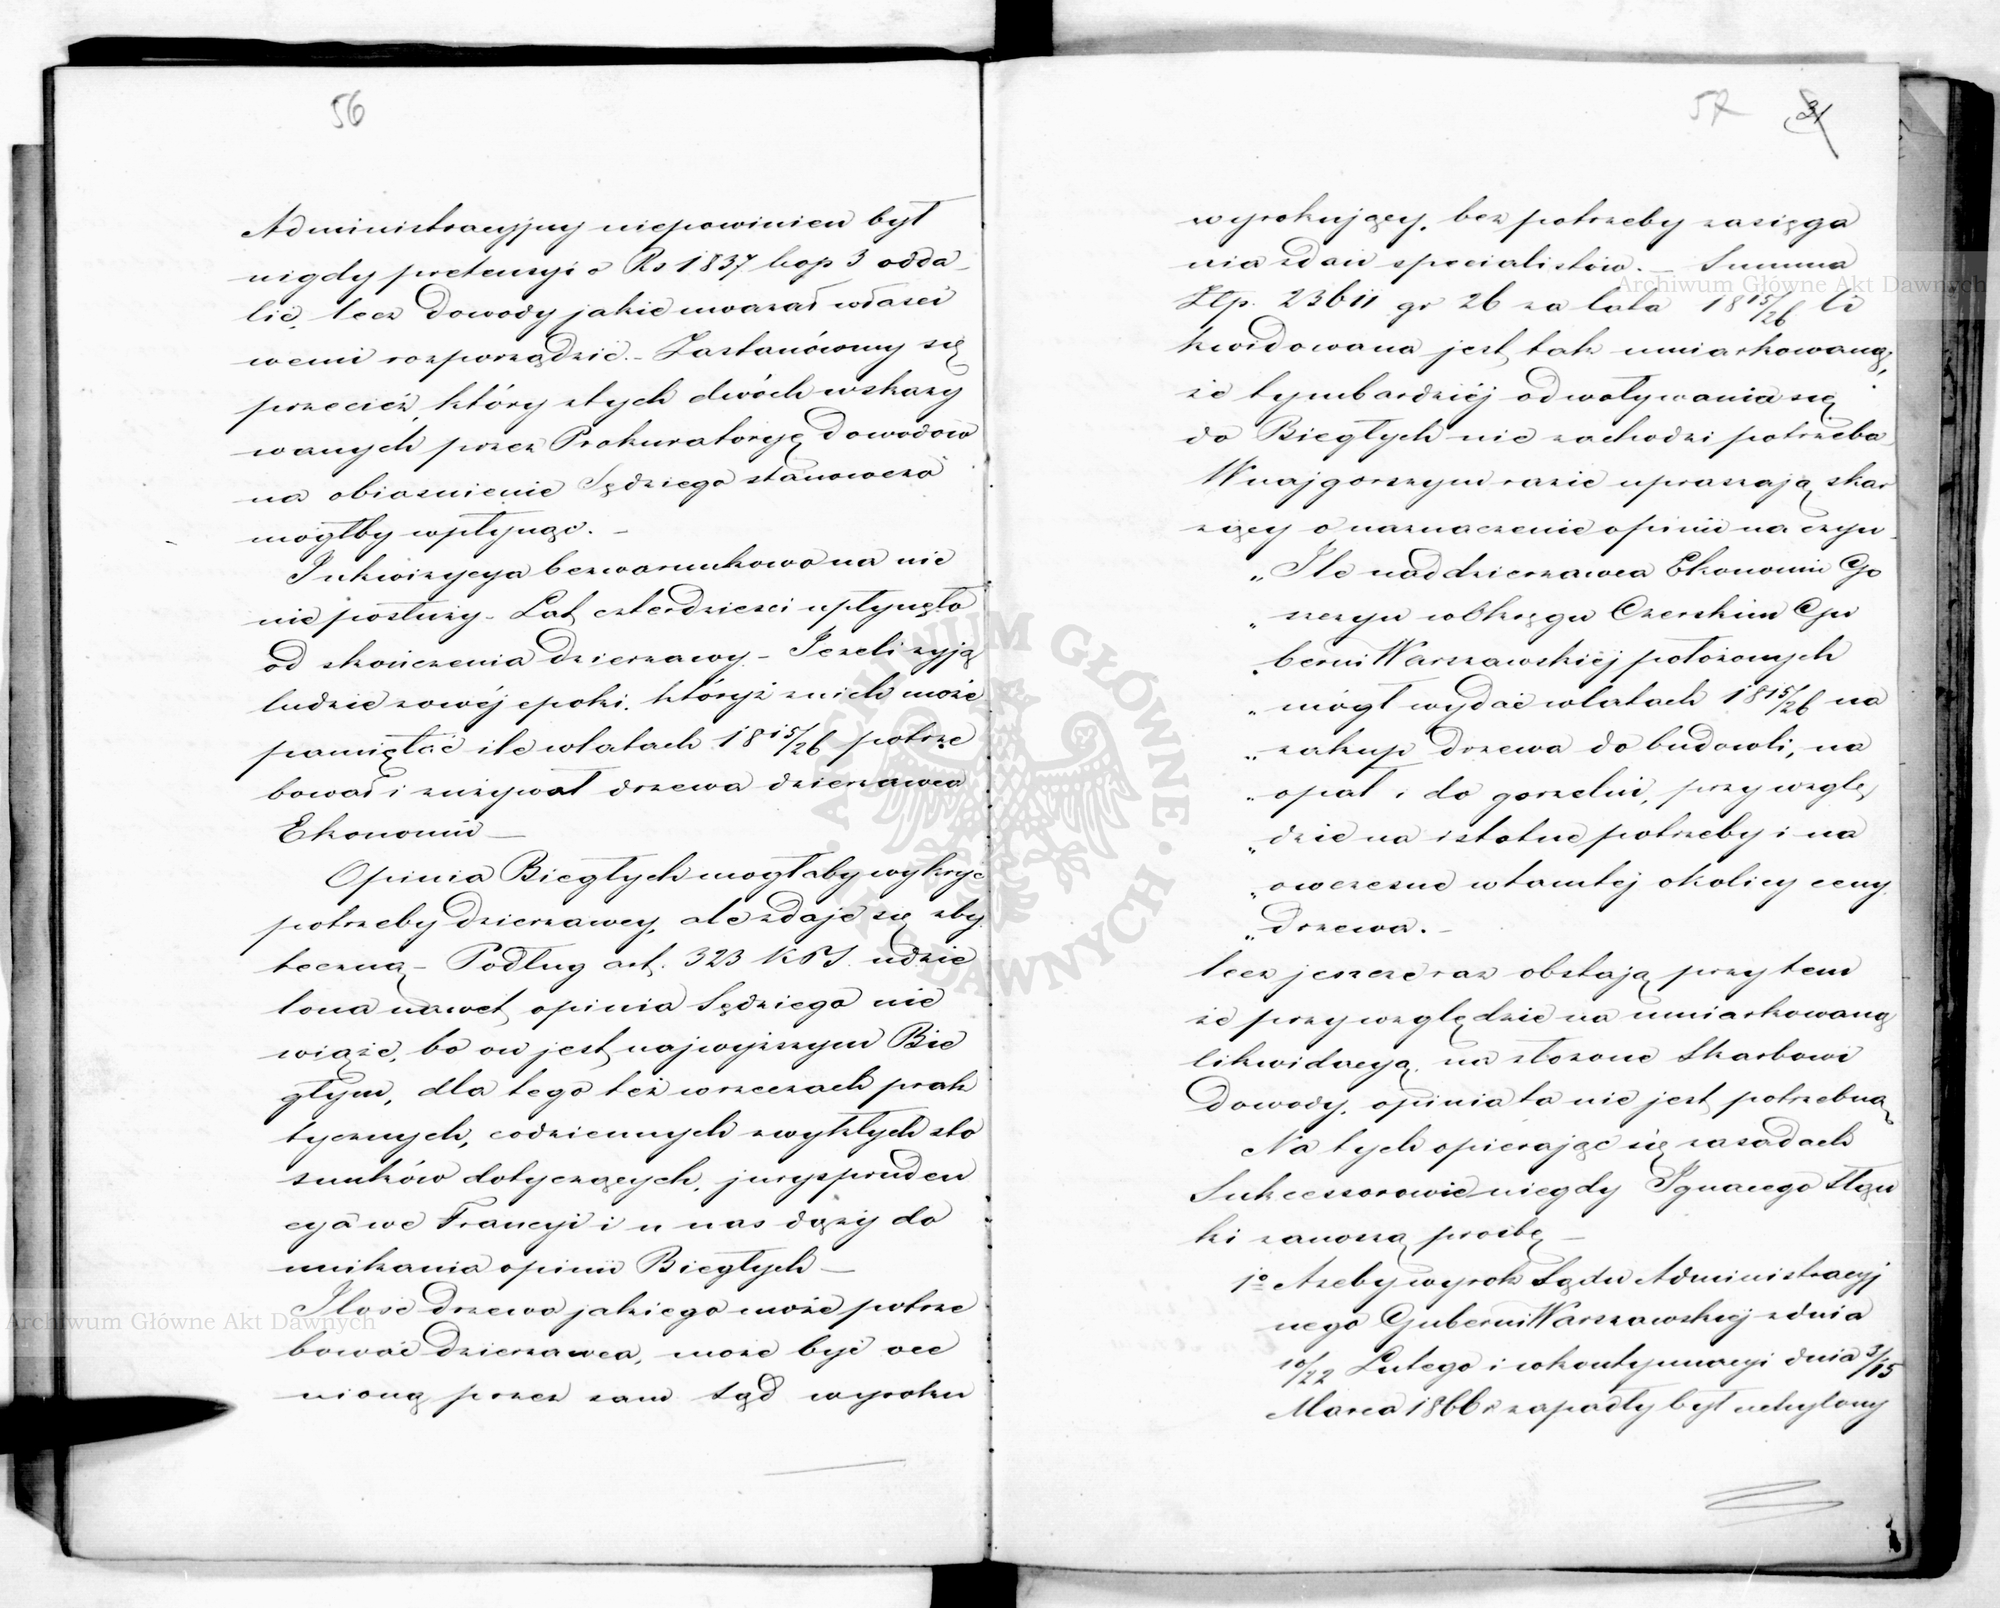 56
Administracyjny niepowinien był
nigdy pretensyi o Rs 1837 kop 3 odda-
lić, lecz dowody jakie uważał właści
wemi rozporządzić. - Zastanówmy się
przecież, który z tych dwóch wskazy
wanych przez Prokuratoryę dowodów
na obiasnienie Sędziego stanowczo
mógłby wpłynąć. -
Inkwizycya bezwarunkowo na nic
nie posłuży - Lat czterdzieści upłynęło
od skończenia dzierzawy - Jezeli zyją
ludzie z owéj epoki, któryż z nich może
pamiętać ile w latach 18 15/26 potrze
bował i zużywał drzewa dzierzawca
Ekonomii -
Opinia Biegłych mogłaby wykryć
potrzeby dzierzawcy, ale zdaje się zby
teczną - Podług art. 323 KPS. udzie
lona nawet opinia Sędziego nie
wiąże, bo on jest najwyższym Bie
głym, dla tego też w rzeczach prak
tycznych, codziennych zwykłych sto
sunków dotyczących, juryspruden
cya we Francyi i u nas dąży do
unikania opinii Biegłych -
Ilość drzewa jakiego może potrze
bować dzierzawca, może być oce
nioną przez sam Sąd wyroku
57 31
wyrokujący, bez potrzeby zasięga
nia zdań specialistów. - Summa
Złp. 23611 gr 26 za lata 18 15/26 li
kwidowana jest tak umiarkowaną,
że tymbardziéj odwoływania się
do Biegłych nie zachodzi potrzeba
W najgorszym razie upraszają skar
zący o naznaczenie opinii na czyn
„ Ile naddzierzawca Ekonomii Go
„ szczyn w Okręgu Czerskim Gu
„ berni Warszawskiéj położonych
„ mógł wydać w latach 18 15/26 na
„ zakup drzewa do budowli, na
„ opał i do gorzelni, przy wzglę
„ dzie na istotne potrzeby i na
„ owczesne w tamtéj okolicy ceny
„ drzewa. -
lecz jeszcze raz obstają przy tem
że przy względzie na umiarkowaną
likwidacyą, na złożone Skarbowi
dowody, opinia ta nie jest potrzebną
Na tych opierając się zasadach
Sukcessorowie niegdy Ignacego
ki zanoszą prośbę -
1o Azeby wyrok Sądu Administracyj
nego Guberni Warszawskiéj z dnia
10/22 Lutego i w kontynuacyi dnia 3/15
Marca 1866 r zapadły był uchylony
Archiwum Główne Akt Dawnych
Archiwum Główne Akt Dawnych
· ARCHIWUM GŁÓWNE · AKT DAWNYCH